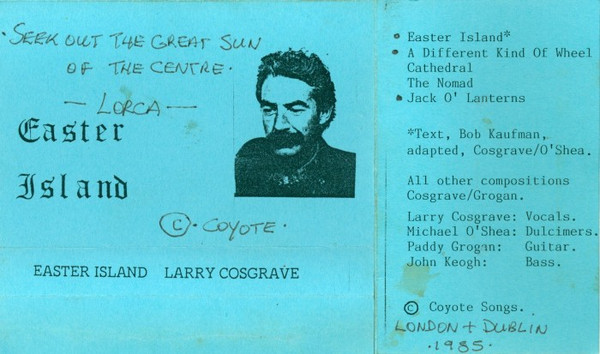 · SEEK OUT THE GREAT SUN
OF THE CENTRE ·
— LORCA —
Easter
Island
© · COYOTE ·
EASTER ISLAND LARRY COSGRAVE
• Easter Island*
• A Different Kind Of Wheel
Cathedral
The Nomad
• Jack O' Lanterns
*Text, Bob Kaufman,
adapted, Cosgrave/O'Shea.
All other compositions
Cosgrave/Grogan.
Larry Cosgrave: Vocals.
Michael O'Shea: Dulcimers.
Paddy Grogan: Guitar.
John Keogh: Bass.
© Coyote Songs.
LONDON + DUBLIN
· 1985 ·